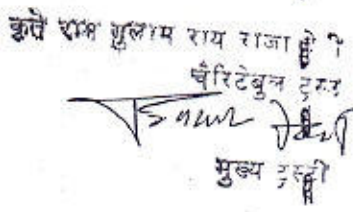 कृते राम गुलाम राय राजा
चैरिटेबुल ट्रस्ट
मुख्य ट्रस्टी